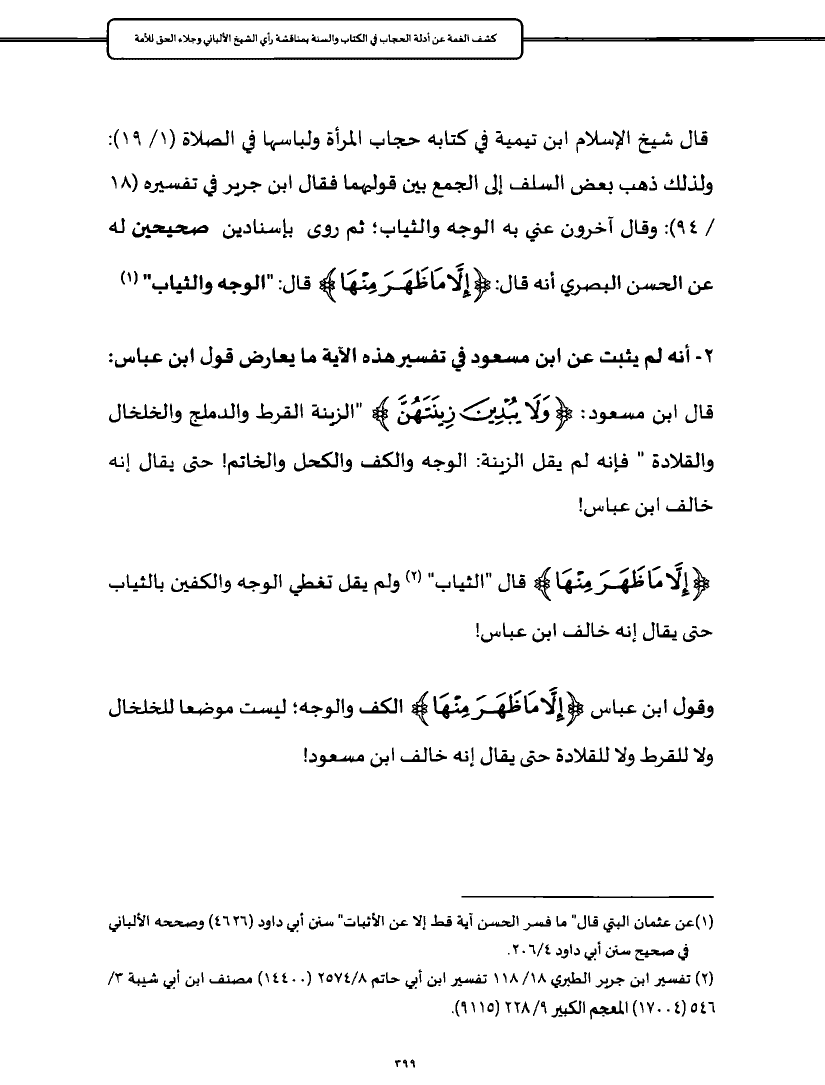 كشف الغمة عن أدلة الحجاب في الكتاب والسنة بمناقشة رأي الشيخ الألباني وجلاء الحق للأمة
قال شيخ الإسلام ابن تيمية في كتابه حجاب المرأة ولباسها في الصلاة (١/ ١٩):
ولذلك ذهب بعض السلف إلى الجمع بين قوليهما فقال ابن جرير في تفسيره (١٨
/ ٩٤): وقال آخرون عني به الوجه والثياب؛ ثم روى بإسنادين صحيحين له
عن الحسن البصري أنه قال: ﴿إِلَّا مَا ظَهَرَ مِنْهَا﴾ قال: "الوجه والثياب" (١)
٢- أنه لم يثبت عن ابن مسعود في تفسير هذه الآية ما يعارض قول ابن عباس:
قال ابن مسعود: ﴿وَلَا يُبْدِينَ زِينَتَهُنَّ﴾ "الزينة القرط والدملج والخلخال
والقلادة " فإنه لم يقل الزينة: الوجه والكف والكحل والخاتم! حتى يقال إنه
خالف ابن عباس!
﴿إِلَّا مَا ظَهَرَ مِنْهَا﴾ قال "الثياب" (٢) ولم يقل تغطي الوجه والكفين بالثياب
حتى يقال إنه خالف ابن عباس!
وقول ابن عباس ﴿إِلَّا مَا ظَهَرَ مِنْهَا﴾ الكف والوجه؛ ليست موضعا للخلخال
ولا للقرط ولا للقلادة حتى يقال إنه خالف ابن مسعود!
(١)عن عثمان البتي قال" ما فسر الحسن آية قط إلا عن الأثبات" سنن أبي داود (٤٦٢٦) وصححه الألباني
في صحيح سنن أبي داود ٢٠٦/٤.
(٢) تفسير ابن جرير الطبري ١٨/ ١١٨ تفسير ابن أبي حاتم ٢٥٧٤/٨ (١٤٤٠٠) مصنف ابن أبي شيبة ٣/
٥٤٦ (١٧٠٠٤) المعجم الكبير ٩/ ٢٢٨ (٩١١٥).
٣٩٩